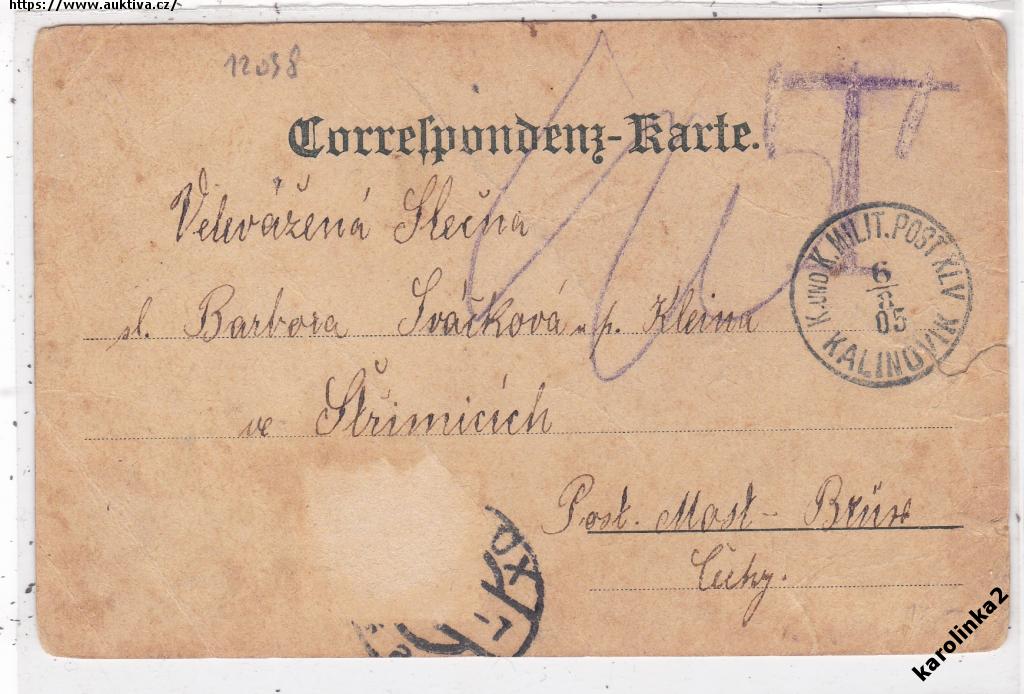 https://www.auktiva.cz/
12098
Correspondenz-Karte.
T
Velevážená Slečna
sl. Barbora Sváčková u p. Kleina
K. UND K. MILIT. POST XLV
6/8
05
KALINOVIK
ve Střimicích
Post. Most - Brüx
Čechy.
karolinka2